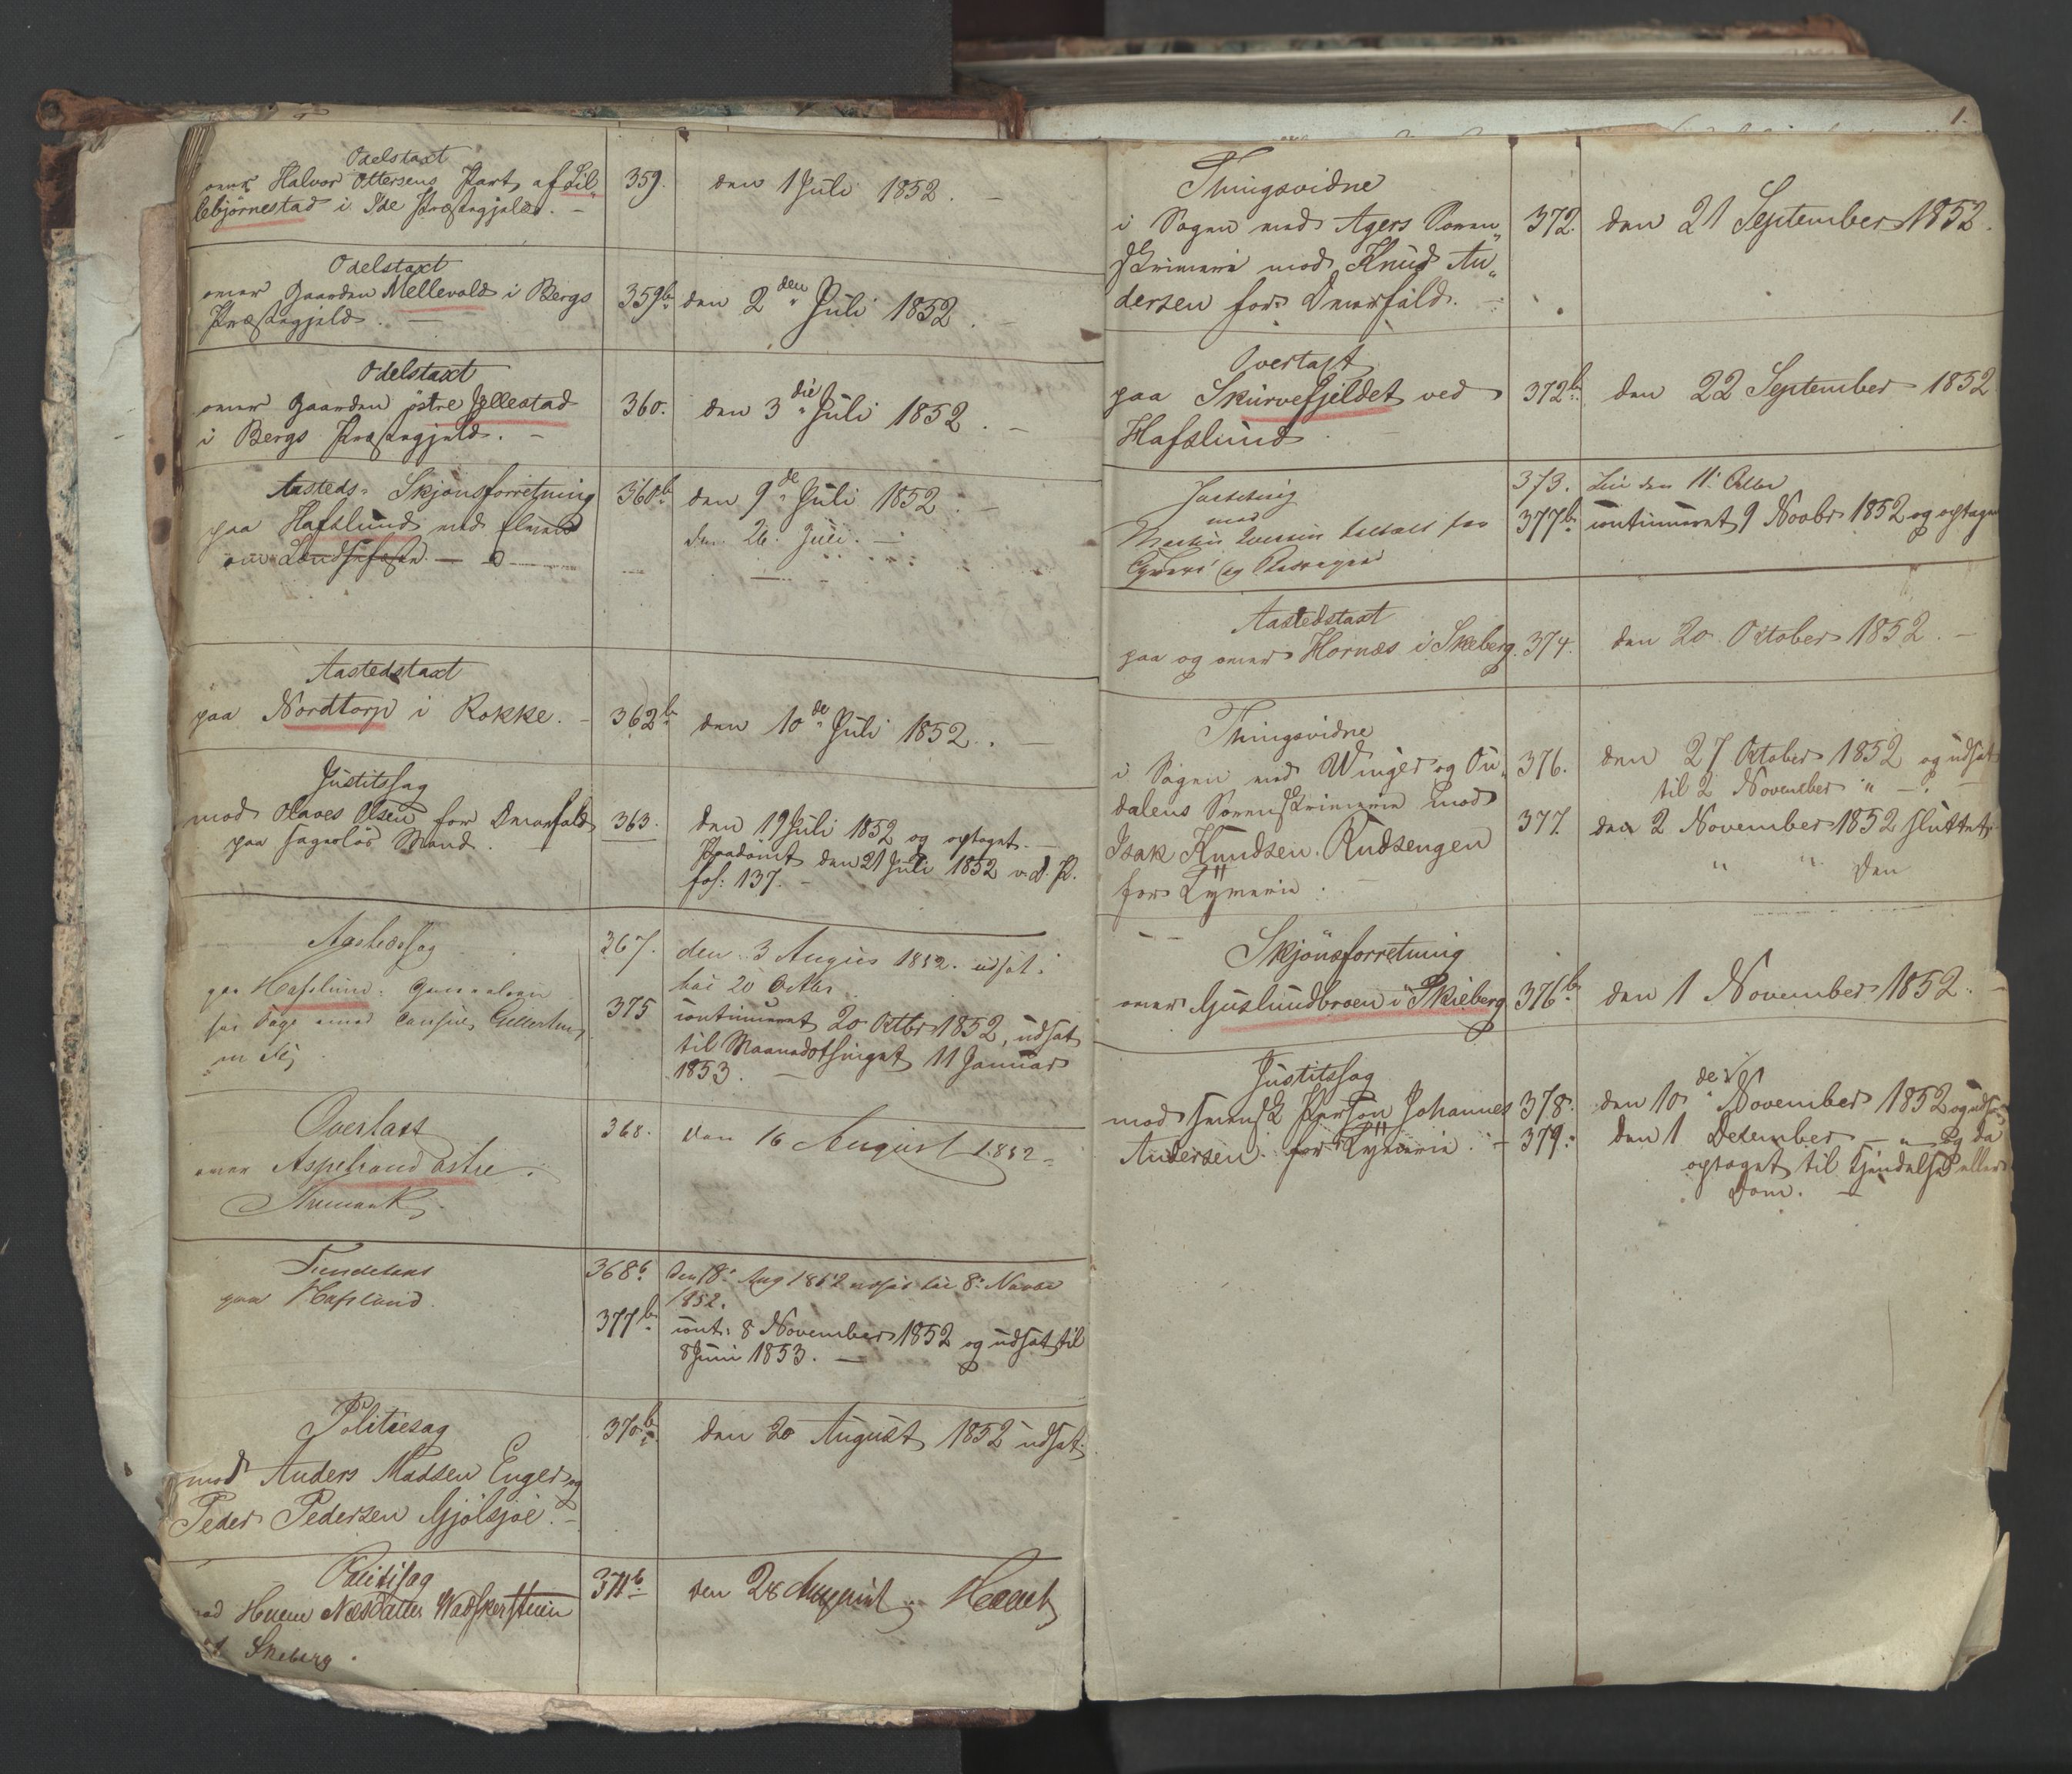 Odelstaxt
over Halvor Ottersens Part af Lil„ 359. den 1 Juli 1852. –
lebjørnestad i Ide Præstegjeld. –
Odelstaxt
over Gaarden Mellevold i Bergs 359b. den 2den Juli 1852. –
Præstegjeld. –
Odelstaxt
over Gaarden østre Jellestad 360. den 3die Juli 1852. –
i Bergs Præstegjeld. –
Aasteds- Skjønsforretning 360b den 9de Juli 1852. –
paa Hafslund med den 26. Juli. –
om
Aastedstaxt
paa Nordtorp i Rokke. – 362b. den 10de Juli 1852. –
Justitssag
mod Olaves Olsen for Overfald 363. den 19 Juli 1852 og optaget. –
paa sagesløs Mand. Paadømt den 21 Juli 1852 v. D. P.
fol: 137. –
Aastedssag 367. den 3 August 1852. udsat
paa Hafslund. til 20 Octbr.
375 continueret 20 Octbr 1852, udsat
til Maanedsthinget 11 Januar
1853. –
Overtaxt 368. den 16 August 1852
over Aspestrand østre
Aremark.
Tiendetaxt 368b den 18. Aug 1852 udsat til 8. Novbr
paa Hafslund. 1852.
377b. cont: 8 November 1852 og udsat til
8 Juni 1853. –
Politiesag 370b. den 20 August 1852 udsat.
mod Anders Madsen Enger og
Peder Pedersen Gjølsjøe. –
Politisag 371b. den 28 August. Hævet
mod Nilsdatter
i Skeberg.
1.
Thingsvidne
i Sagen ved Agers Soren„ 372. den 21 September 1852.
skriveri mod Knud An„
dersen for Overfald. –
Overtaxt
paa Skurvefjeldet ved 372b. den 22 September 1852
Hafslund.
Justitssag 373. den 11. Octbr
mod 377b. continueret 9 Novbr 1852 og optaget
Martin Iversen tiltalt for
Tyveri og
Aastedstaxt
paa og over Hornæs i Skeberg. 374. den 20. Oktober 1852. –
Thingsvidne
i Sagen ved Winger og Ou„ 376. den 27 Oktober 1852 og udsat
til 2 November " –
dalens Sorenskriverie mod 377. den 2 November 1852 sluttet.
Isak Knudsen Rudsengen " " Den
for Tyverie. –
Skjønsforretning
over Guslundbroen i Skieberg 376b. den 1 November 1852. –
Justitssag
mod svensk Person Johannes 378. den 10de November 1852 og udsat
Andersen for Tyverie. – 379. den 1 Dezember – " – og da
optaget til Kjendelse eller
Dom. –